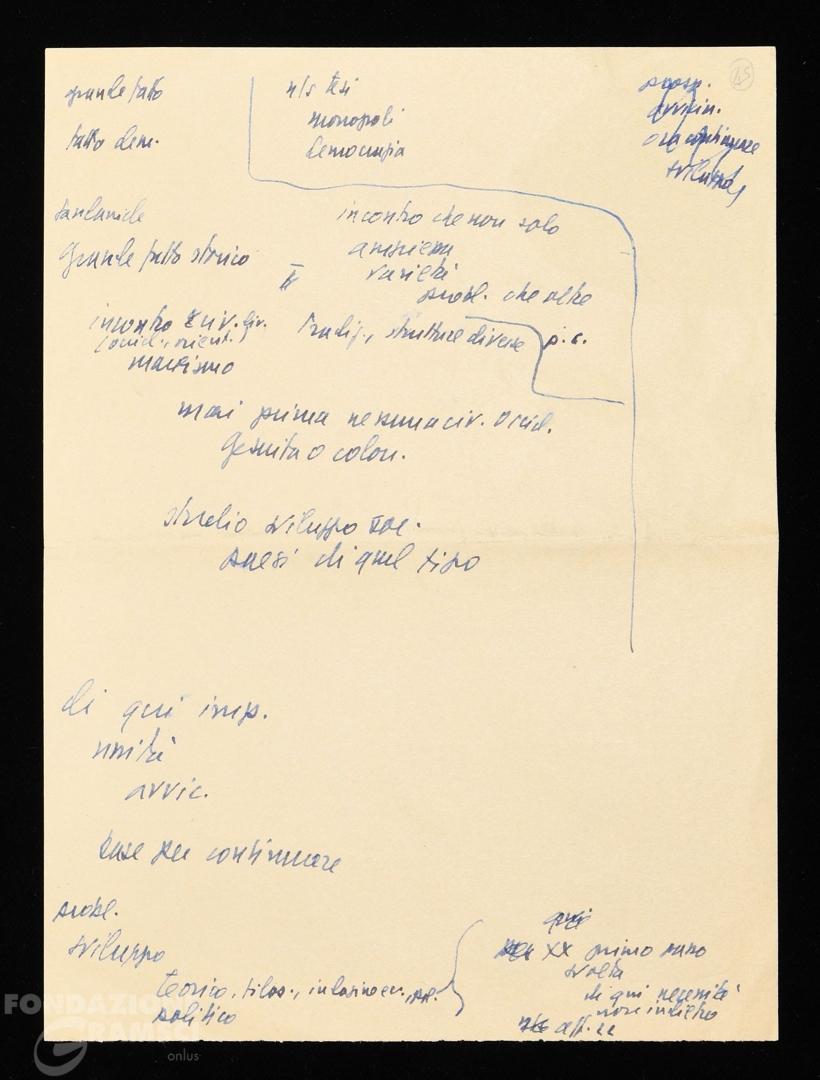 45
grande fatto
fatto dem.
n/s tesi
monopoli
democrazia
prosp.
avvicin.
ora continuare
sviluppo
grande fatto storico
II
incontro che non solo
ampiezza
varietà
probl. che oltre
incontro civ.
(occid., orient.)
marxismo
tradiz., strutture diverse
p. c.
mai prima nessuna civ. occid.
gesuita o colon.
studio sviluppo soc.
paesi di quel tipo
di qui imp.
unità
avvic.
base per continuare
probl.
sviluppo
teorico, filos.,
politico
qui
XX primo passo
svolta
di qui necessità
FONDAZIONE
GRAMSCI
onlus